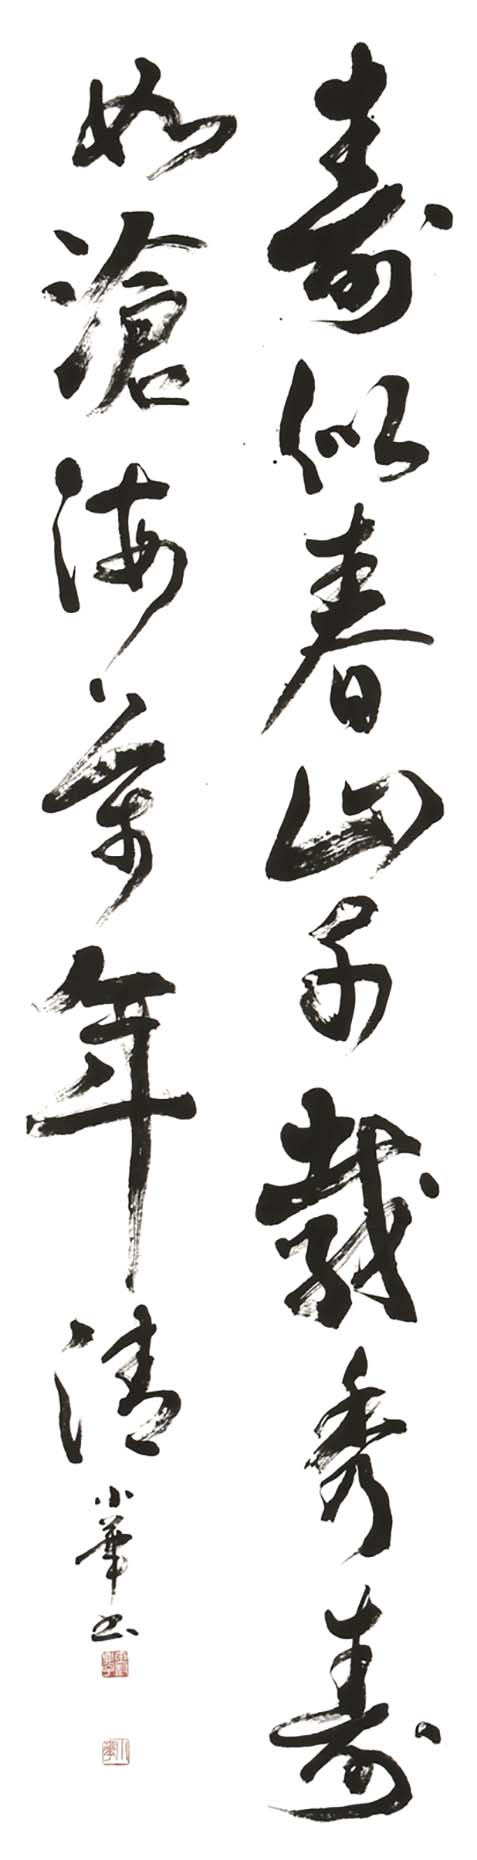 壽似春山千載秀壽
如滄海萬年清
小華书